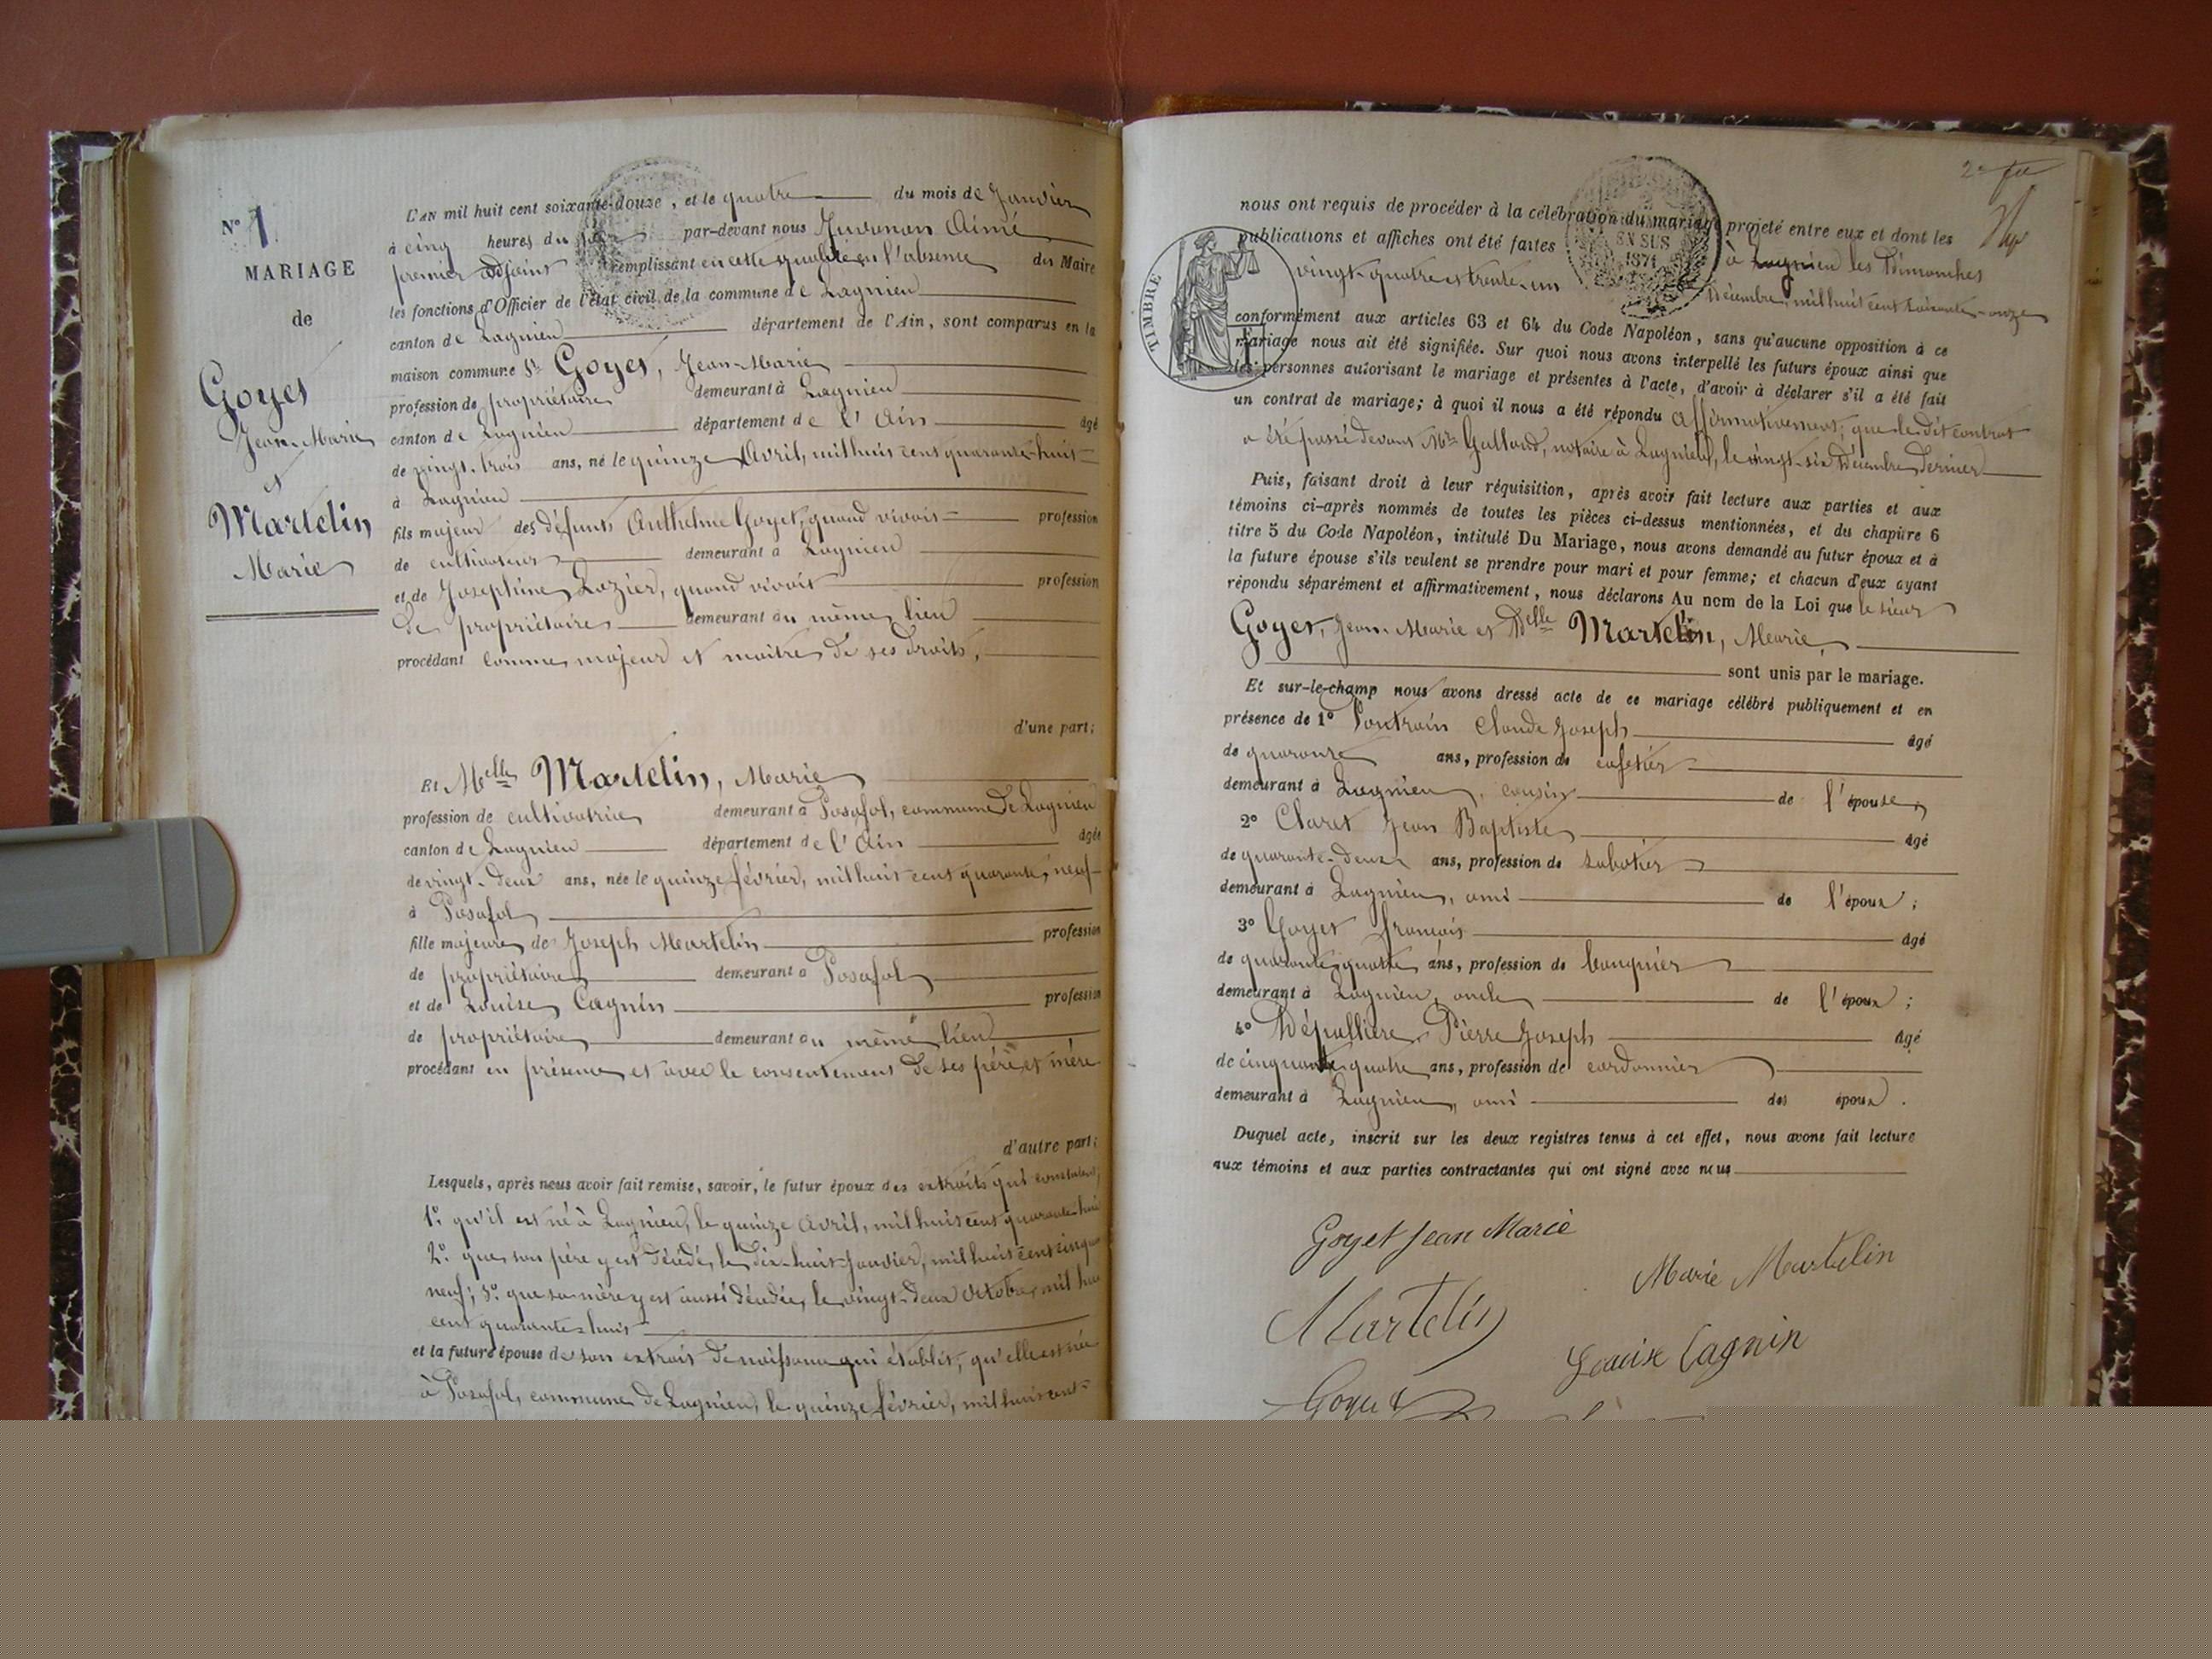 N° 1
MARIAGE
de
Goyet
Jean-Marie
et
Martelin
Marie
L'AN mil huit cent soixante-douze, et le quatre du mois de Janvier
à cinq heures du soir par-devant nous Aimé
premier adjoint remplissant en cette qualité en l'absence du Maire
les fonctions d'Officier de l'état civil de la commune de Lagnieu
canton de Lagnieu département de l'Ain, sont comparus en la
maison commune Sr Goyet, Jean-Marie
profession de propriétaire demeurant à Lagnieu
canton de Lagnieu département de l'Ain âgé
de vingt-trois ans, né le quinze Avril, mil huit cent quarante-huit
à Lagnieu
fils majeur des défunts Anthelme Goyet, quand vivait profession
de cultivateur demeurant à Lagnieu
et de Joséphine Lozier, quand vivait profession
de propriétaire demeurant au même lieu
procédant comme majeur et maître de ses droits,
d'une part;
Et Melle Martelin, Marie
profession de cultivatrice demeurant à Posafol, commune de Lagnieu
canton de Lagnieu département de l'Ain âgée
de vingt-deux ans, née le quinze février, mil huit cent quarante-neuf
à Posafol
fille majeure de Joseph Martelin profession
de propriétaire demeurant à Posafol
et de Louise Cagnin profession
de propriétaire demeurant au même lieu
procédant en présence et avec le consentement de ses père et mère
d'autre part;
Lesquels, après nous avoir fait remise, savoir, le futur époux des extraits qui constatent,
1°. qu'il est né à Lagnieu, le quinze Avril, mil huit cent quarante-huit
2°. que son père y est décédé, le dix-huit Janvier, mil huit cent cinquante
neuf; 3°. que sa mère y est aussi décédée, le vingt-deux Octobre, mil huit
cent quarante-huit
et la future épouse de son extrait de naissance qui établit, qu'elle est née
à Posafol, commune de Lagnieu, le quinze février, mil huit cent
2e
nous ont requis de procéder à la célébration du mariage projeté entre eux et dont les
publications et affiches ont été faites à Lagnieu les Dimanches
vingt-quatre et trente-un Décembre, mil huit cent soixante-onze
TIMBRE
EN SUS
1871
conformément aux articles 63 et 64 du Code Napoléon, sans qu'aucune opposition à ce
mariage nous ait été signifiée. Sur quoi nous avons interpellé les futurs époux ainsi que
les personnes autorisant le mariage et présentes à l'acte, d'avoir à déclarer s'il a été fait
un contrat de mariage; à quoi il nous a été répondu Affirmativement; que le dit contrat
a été passé devant Me Galland, notaire à Lagnieu, le vingt-six Décembre dernier
Puis, faisant droit à leur réquisition, après avoir fait lecture aux parties et aux
témoins ci-après nommés de toutes les pièces ci-dessus mentionnées, et du chapitre 6
titre 5 du Code Napoléon, intitulé Du Mariage, nous avons demandé au futur époux et à
la future épouse s'ils veulent se prendre pour mari et pour femme; et chacun d'eux ayant
répondu séparément et affirmativement, nous déclarons Au nom de la Loi que le sieur
Goyet, Jean-Marie et Delle Martelin, Marie,
sont unis par le mariage.
Et sur-le-champ nous avons dressé acte de ce mariage célébré publiquement et en
présence de 1° Claude Joseph âgé
de quarante ans, profession de cafetier
demeurant à Lagnieu, cousin de l'épouse;
2° Claret Jean Baptiste âgé
de quarante-deux ans, profession de sabotier
demeurant à Lagnieu, ami de l'époux;
3° Goyet françois âgé
de quarante-quatre ans, profession de banquier
demeurant à Lagnieu, oncle de l'époux;
4° Dépallière Pierre Joseph âgé
de cinquante-quatre ans, profession de cordonnier
demeurant à Lagnieu, ami des époux.
Duquel acte, inscrit sur les deux registres tenus à cet effet, nous avons fait lecture
aux témoins et aux parties contractantes qui ont signé avec nous
Goyet Jean Marie
Marie Martelin
Martelin
Louise Cagnin
Goyet